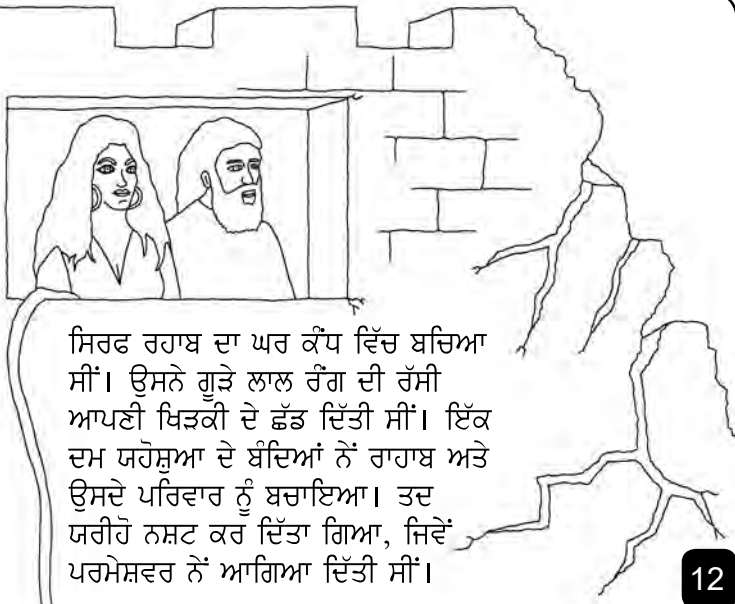 ਸਿਰਫ ਰਹਾਬ ਦਾ ਘਰ ਕੰਧ ਵਿੱਚ ਬਚਿਆ
ਸੀਂ। ਉਸਨੇ ਗੂੜੇ ਲਾਲ ਰੰਗ ਦੀ ਰੱਸੀ
ਆਪਣੀ ਖਿੜਕੀ ਦੇ ਛੱਡ ਦਿੱਤੀ ਸੀਂ। ਇੱਕ
ਦਮ ਯਹੋਸ਼ੁਆ ਦੇ ਬੰਦਿਆਂ ਨੇਂ ਰਾਹਾਬ ਅਤੇ
ਉਸਦੇ ਪਰਿਵਾਰ ਨੂੰ ਬਚਾਇਆ। ਤਦ
ਯਰੀਹੋ ਨਸ਼ਟ ਕਰ ਦਿੱਤਾ ਗਿਆ, ਜਿਵੇਂ
ਪਰਮੇਸ਼ਵਰ ਨੇਂ ਆਗਿਆ ਦਿੱਤੀ ਸੀਂ।
12